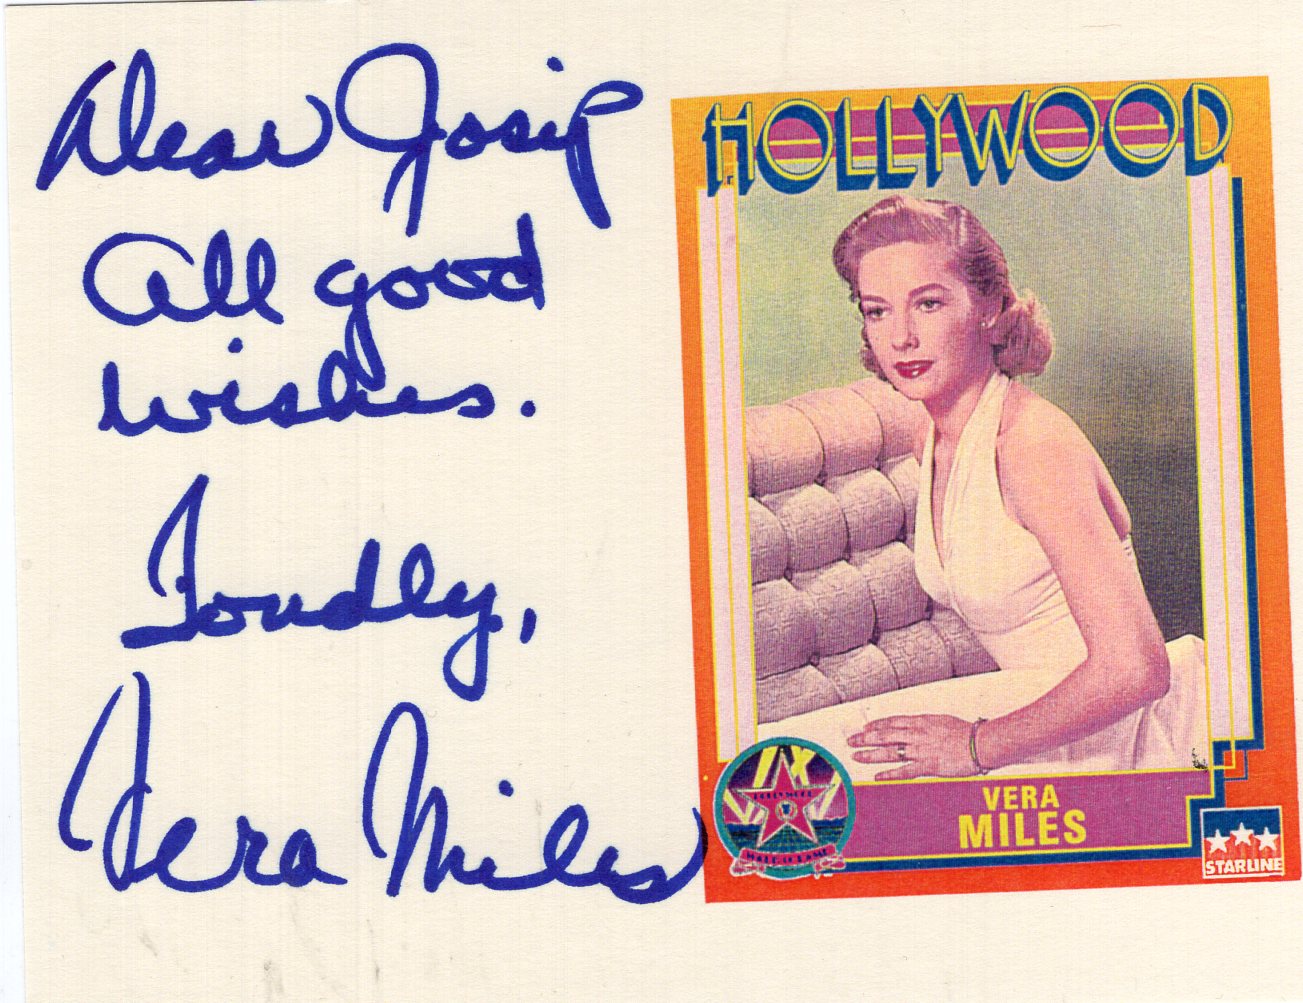 Dear Josip
All good
wishes.
Fondly,
Vera Miles
HOLLYWOOD
VERA
MILES
HOLLYWOOD
WALK OF FAME
STARLINE